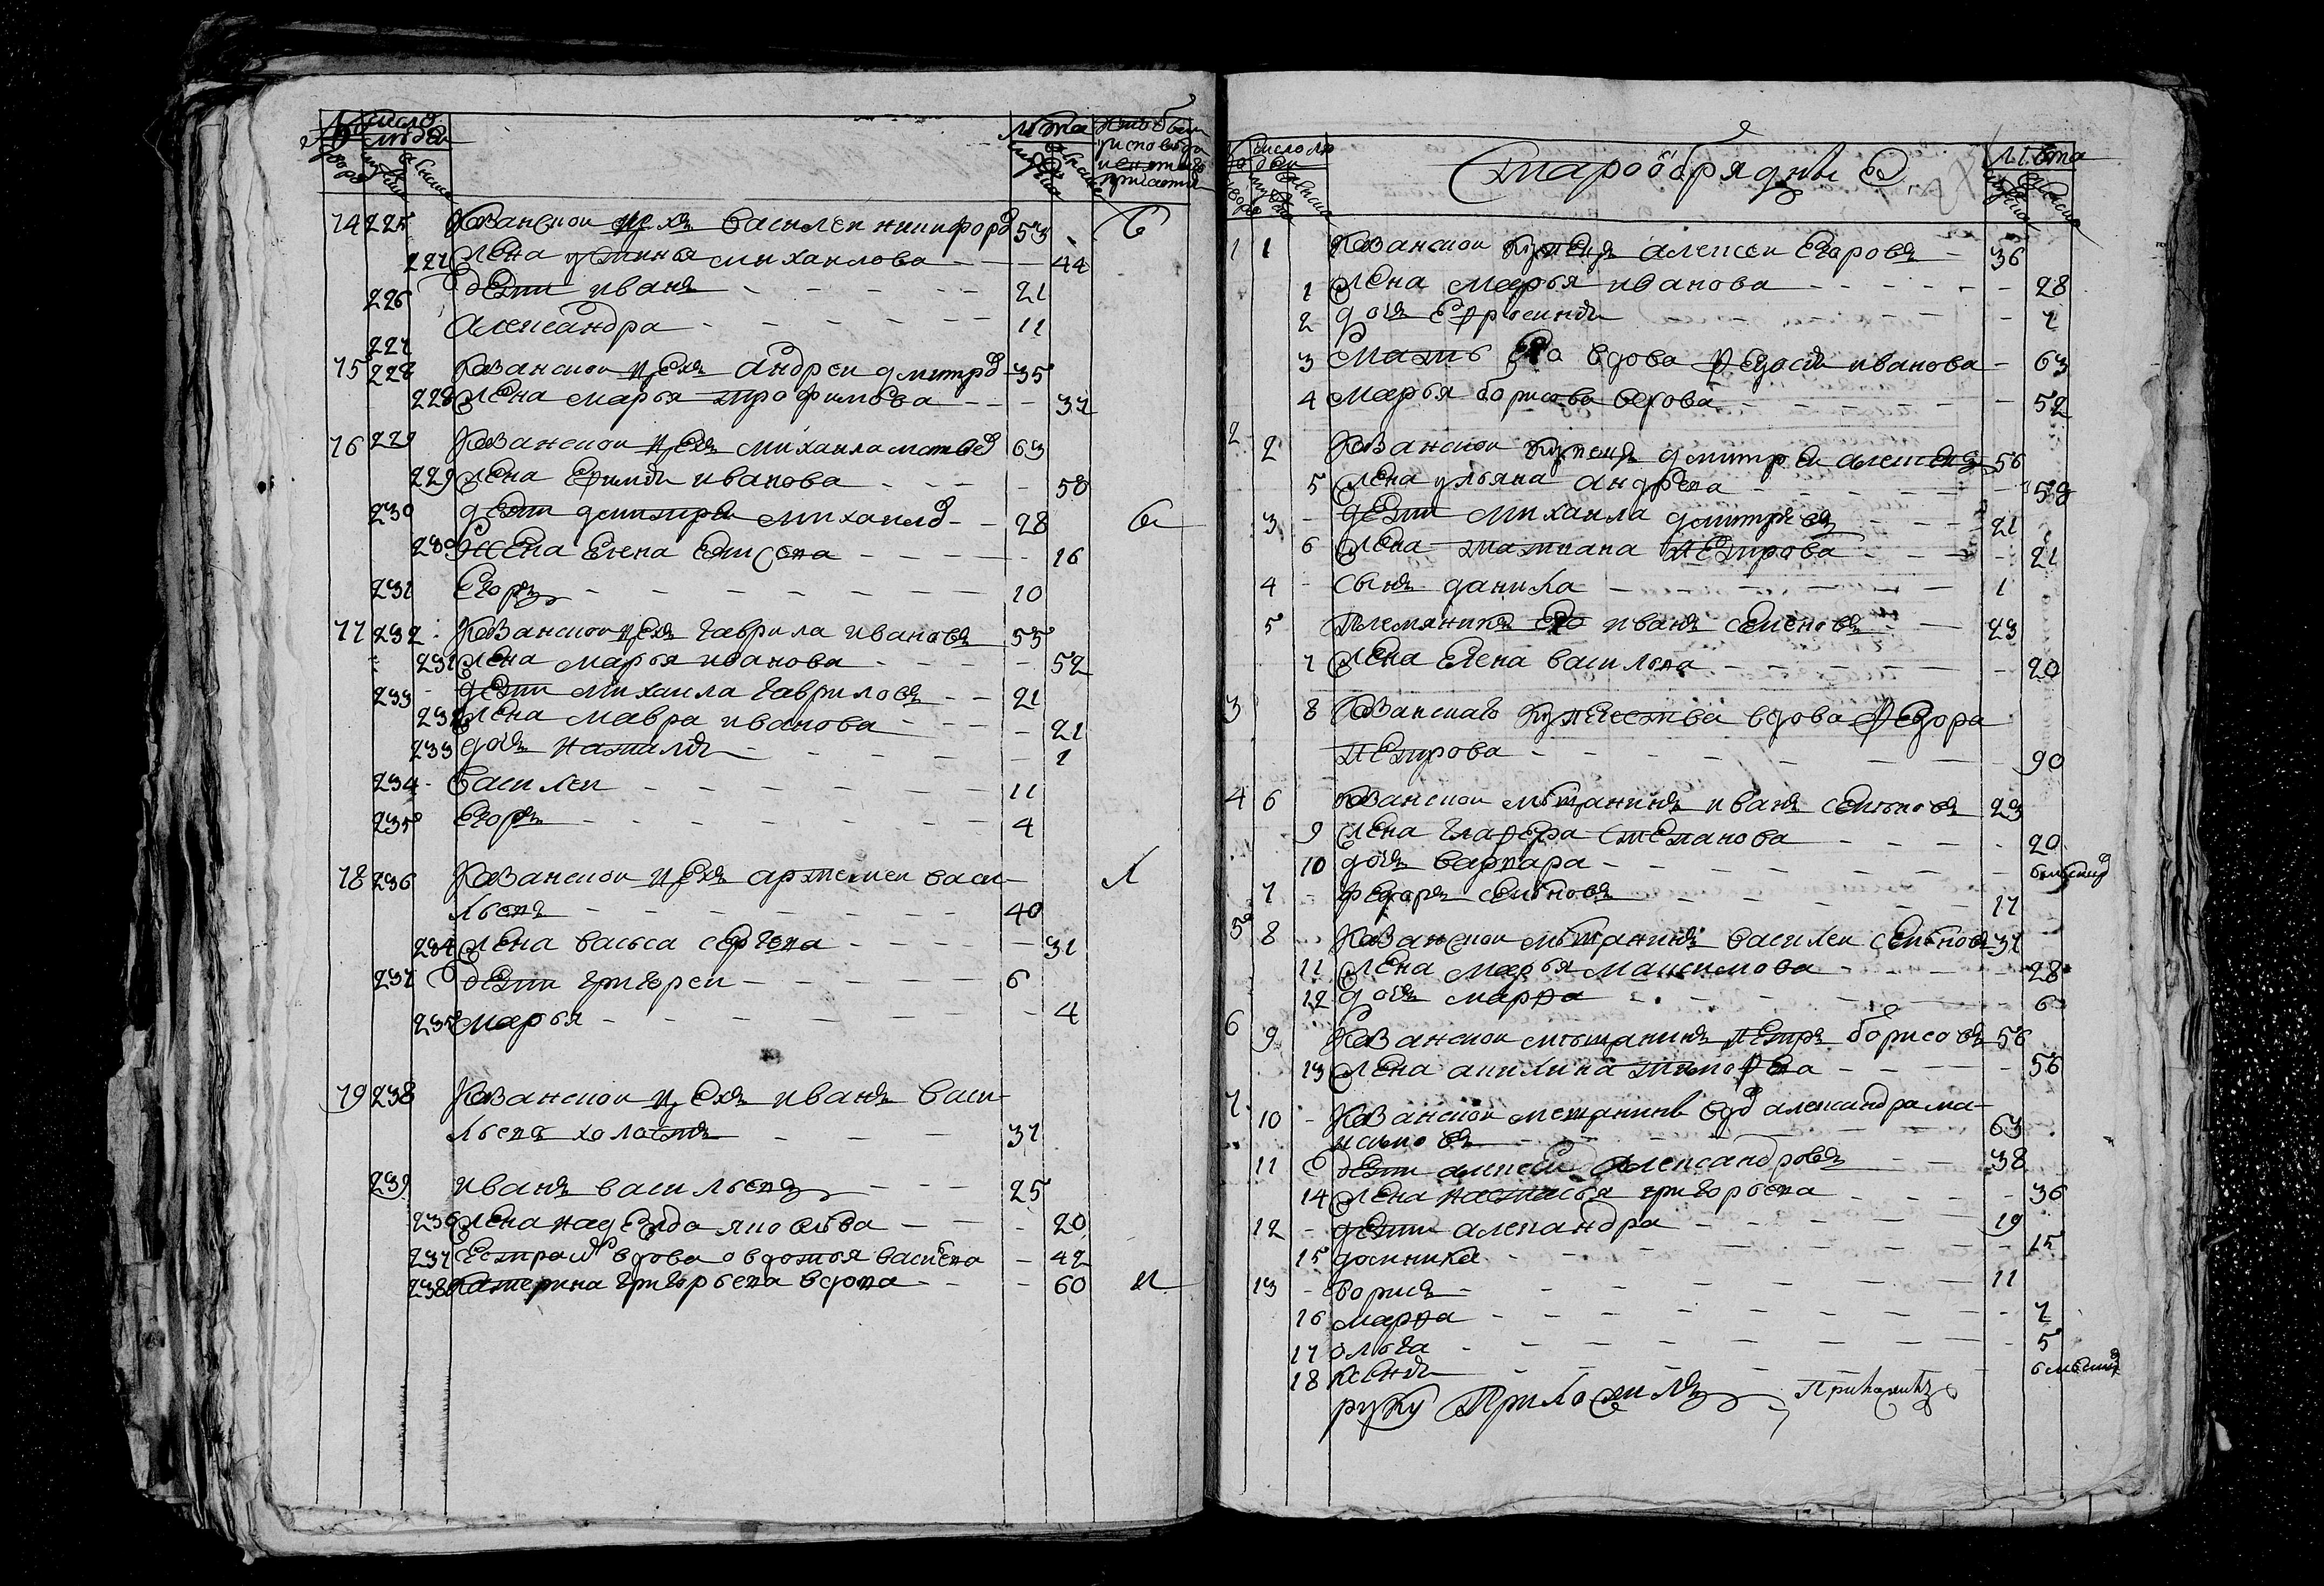 число людей
лѣта
двора
мужеска
женска
74 225 Казанской цехъ Василеи никифоро 53
227 жена устинья михаилова 44
226 дети иванъ 21
227 Александра 11
75 228 Казанской цехъ Андреи дмитре 35
228 жена марья трофимова 37
76 229 Казанской цехъ михаила матвее 63
229 жена Ефимия иванова 50
230 дети дмитреи михаило 28
230 Жена Елена 16
231 Егоръ 10
77 232 Казанской цехъ гаврила ивановъ 55
231 жена марья иванова 52
233 дети михаила гавриловъ 21
232 жена мавра иванова 21
233 дочь наталия 1
234 Василеи 11
235 Егоръ 4
78 236 Казанской цехъ артемеи васи-
льевъ 40
234 жена васса сергеева 31
237 дети григореи 6
235 марья 4
79 238 Казанской цехъ иванъ васи-
льевъ холостъ 37
239 иванъ васильевъ 25
236 жена надежда яковлева 20
237 сестра вдова овдотья 42
238 катерина григорьева вдова 60
Старообрядцы
число лю
дей
лѣта
1 1 Казанской купецъ алексеи Егоровъ 36
1 жена марья иванова 28
2 дочь Ефросиния 7
3 мать Его вдова Федосия иванова 63
4 марья борисова вдова 52
2 2 Казанской купецъ дмитреи алексеевъ 56
5 жена ульяна андреева 58
3 дети михаила дмитреевъ 21
6 жена татиана петрова 21
4 сынъ данила 1
5 племяникъ Его иванъ семеновъ 23
7 жена Елена васильева 20
3 8 Казанскаго купечества вдова Федора
петрова 90
4 6 Казанской мѣщанинъ иванъ семеновъ 23
9 жена глафера степанова 20
10 дочь варвара
7 федоръ семеновъ 17
5 8 Казанской мѣщанинъ василеи семенов 37
11 жена марья максимова 28
12 дочь марфа 6
6 9 Казанской мѣщанинъ петръ борисовъ 56
13 жена акилина тимофеева 56
7 10 Казанской мещанинъ александра ма-
ксимовъ 63
11 дети алексеи александровъ 38
14 жена настасья григорьева 36
12 дети алекандра 19
15 домника 15
13 борисъ 11
16 марфа 7
17 ольга 5
18 Ксения
руку Приложилъ